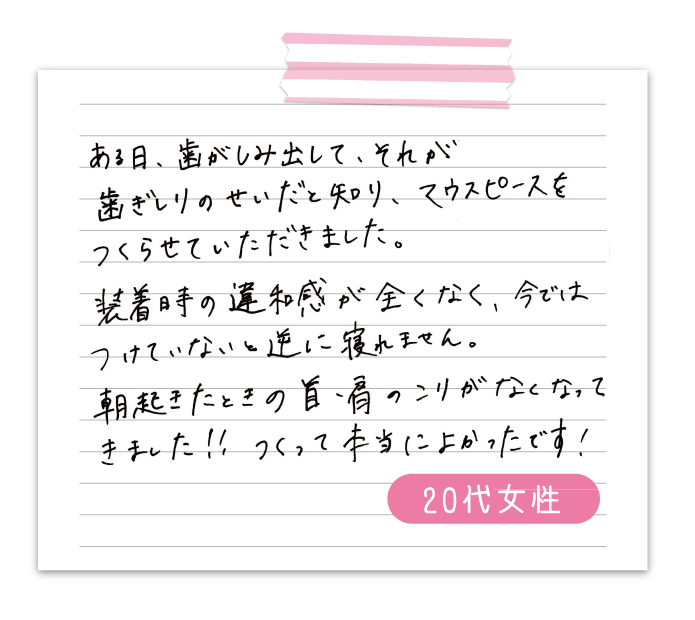 ある日、歯がしみ出して、それが
歯ぎしりのせいだと知り、マウスピースを
つくらせていただきました。
装着時の違和感が全くなく、今では
つけていないと逆に寝れません。
朝起きたときの首・肩のこりがなくなって
きました!! つくって本当によかったです!
20代女性